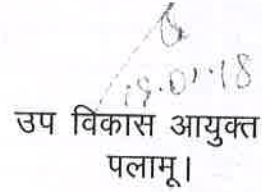 19.01.18
उप विकास आयुक्त
पलामू।